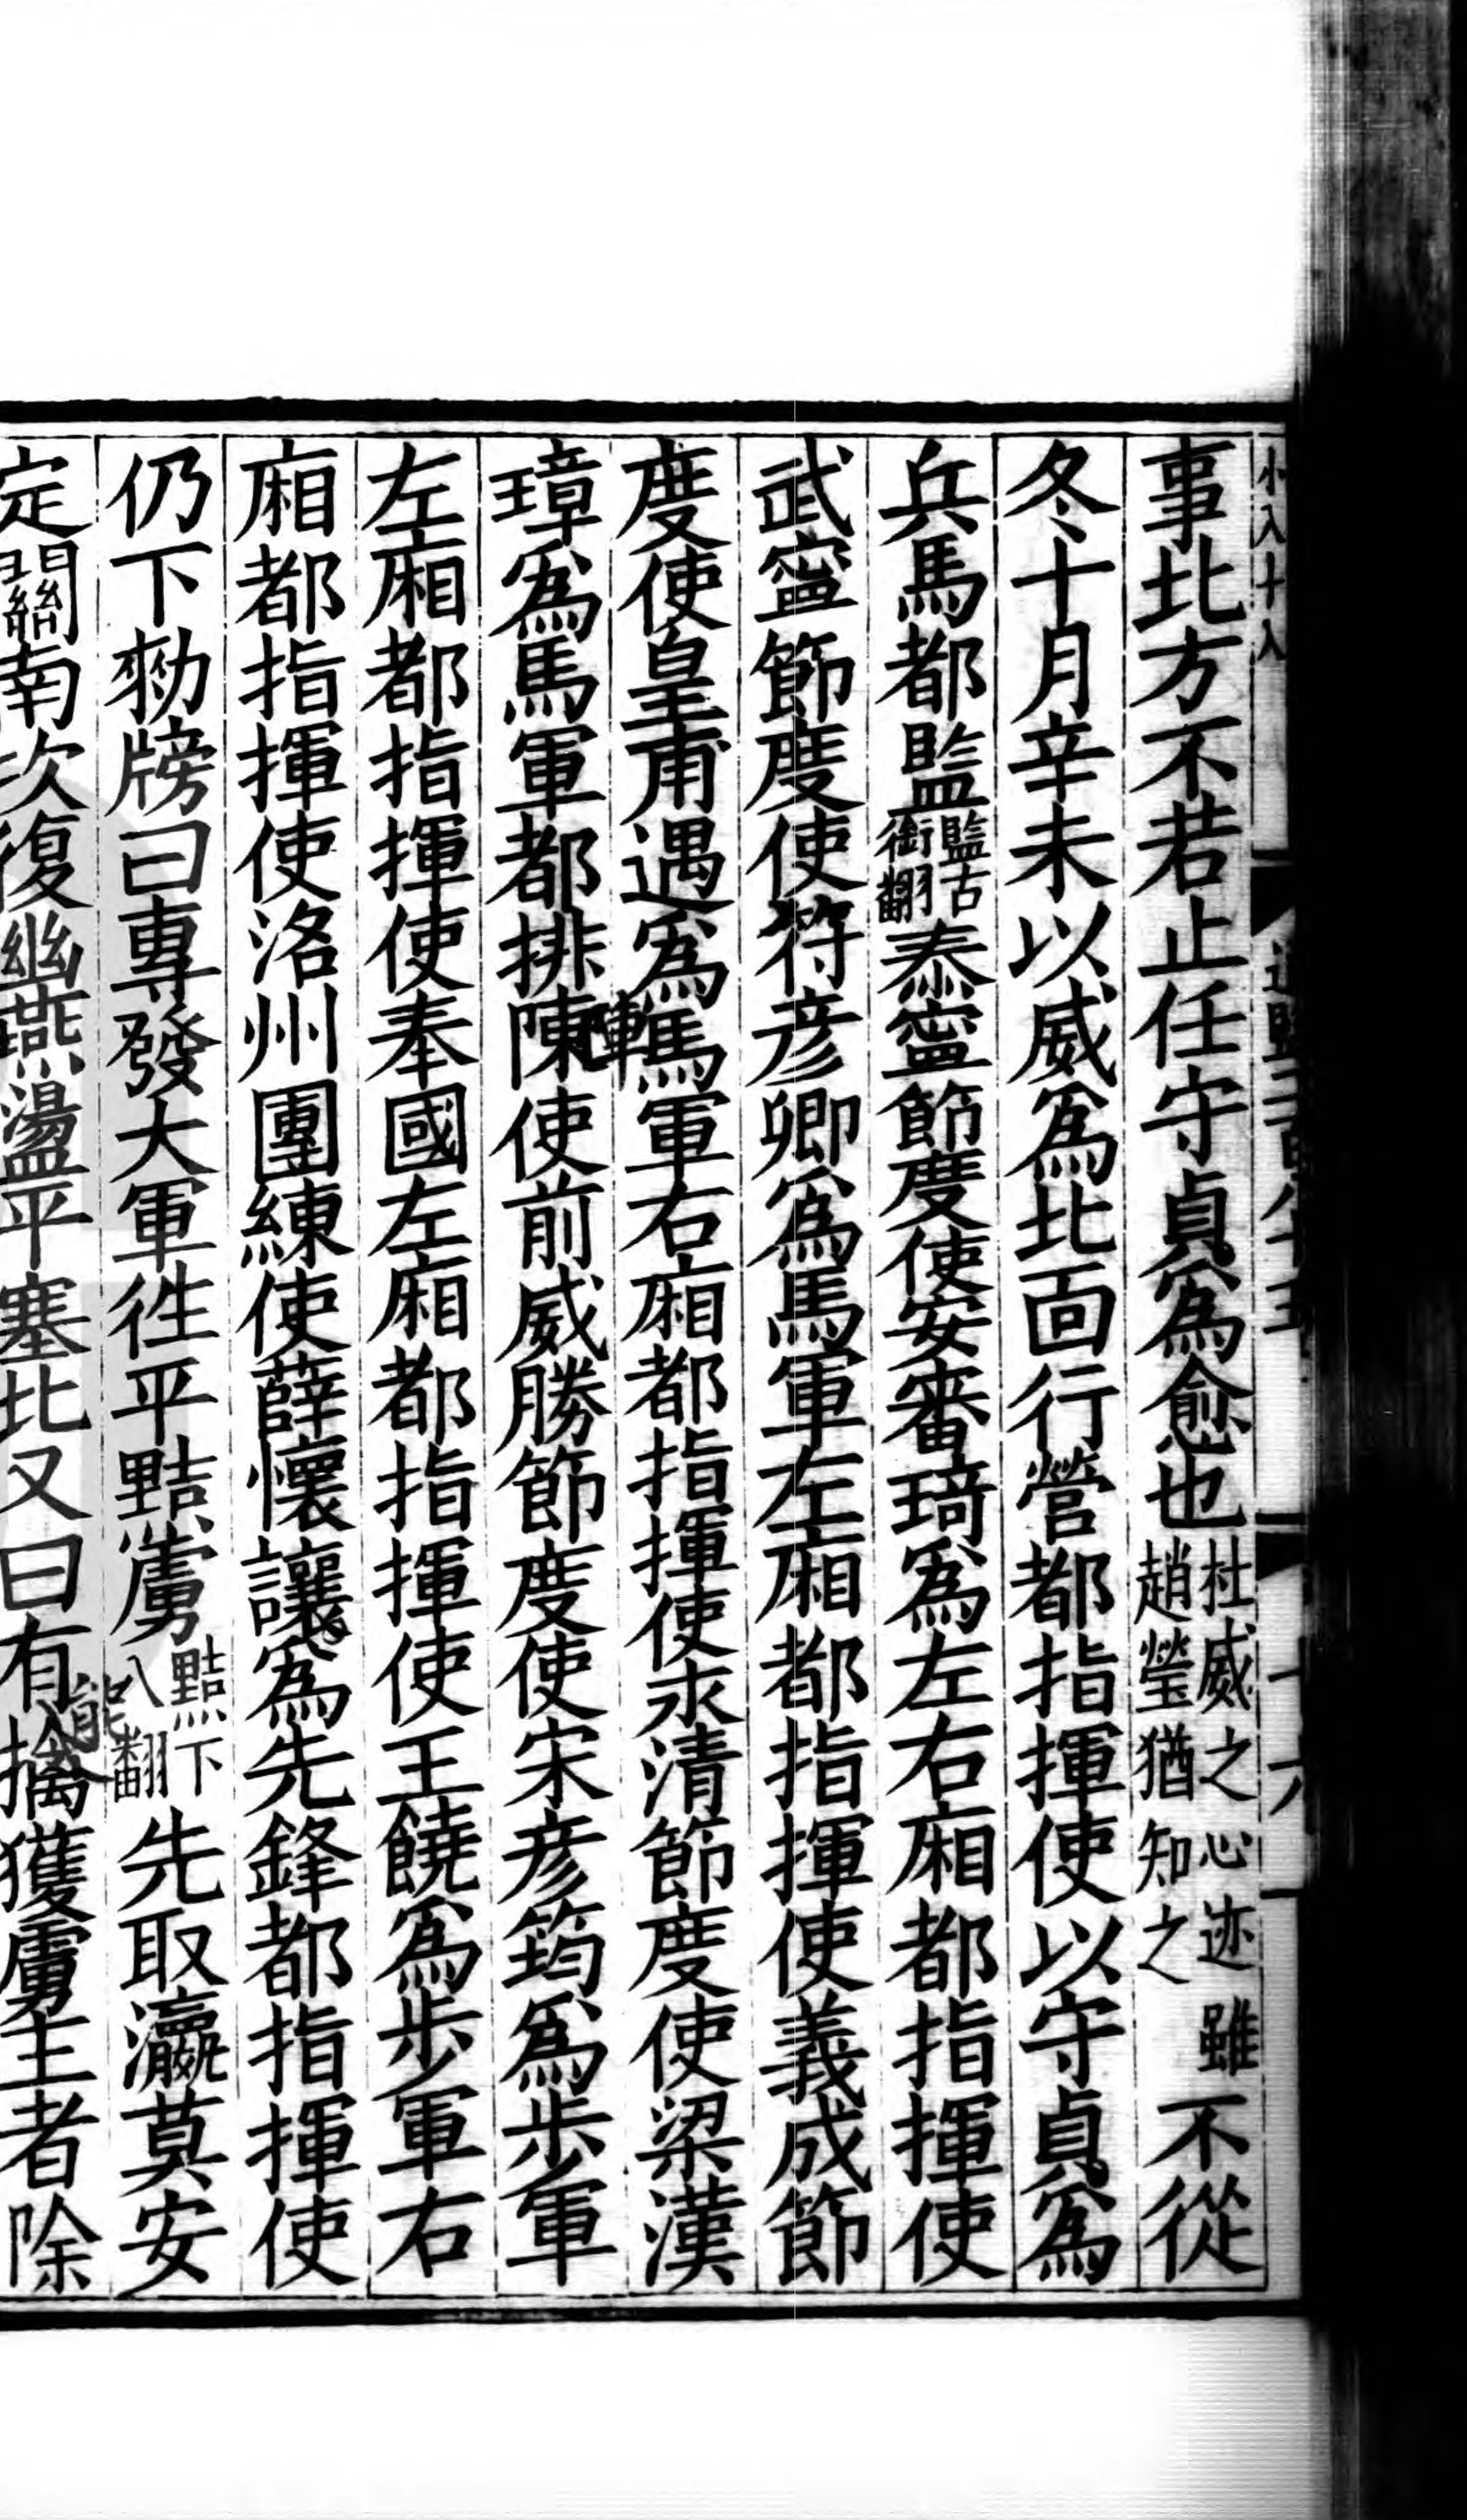 事北方不若止任守貞爲愈也杜威之心迹趙瑩猶知之雖不從
冬十月辛未以威爲北面行營都指揮使以守貞爲
兵馬都監監古銜翻泰寧節度使安審琦爲左右廂都指揮使
武寧節度使符彦卿爲馬軍左廂都指揮使義成節
度使皇甫遇爲馬軍右廂都指揮使永清節度使梁漢
璋爲馬軍都排陳使前威勝節度使宋彦筠爲步軍
左廂都指揮使奉國左廂都指揮使王饒爲步軍右
廂都指揮使洛州團練使薛懷讓爲先鋒都指揮使
仍下勑牓曰專發大軍往平黠虜黠下八翻先取瀛莫安
定關南次復幽燕盪平塞北又曰有能擒獲虜主者除